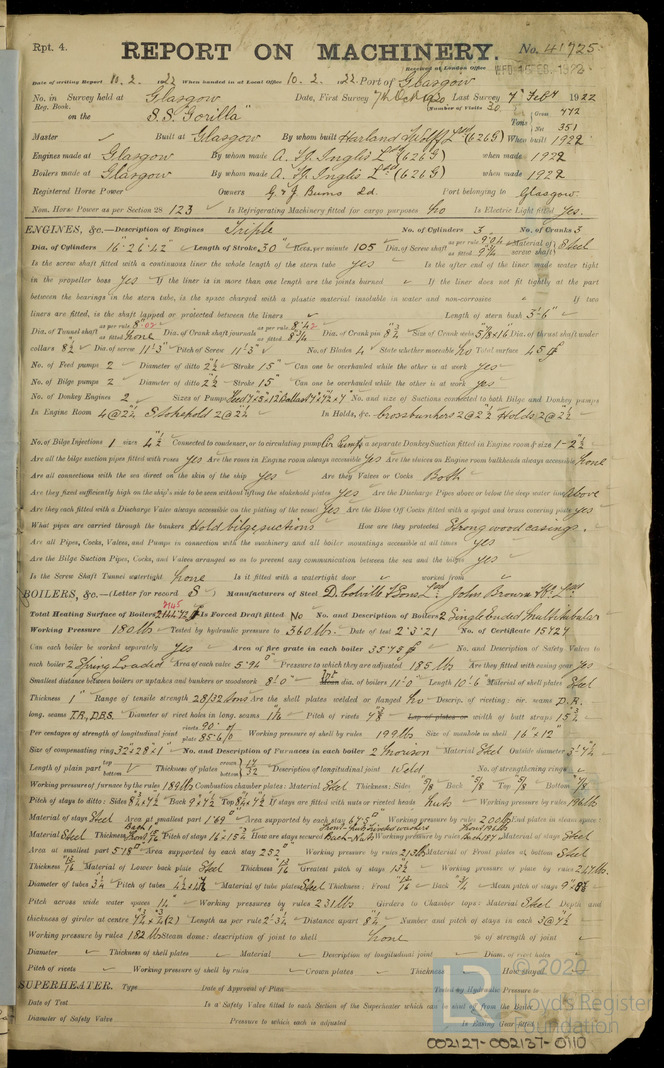 Rpt. 4.
REPORT ON MACHINERY.
No. 41725
Received at London Office
Date of writing Report 10. 2. 1922 When handed in at Local Office 10. 2. 1922. Port of Glasgow
No. in Survey held at Glasgow Date, First Survey 7th Oct 1920 Last Survey 7th Feby 1922
Reg. Book. (Number of Visits 30.
on the S.S. "Gorilla" Tons Gross 772 Net 351
Master Built at Glasgow By whom built Harland & Wolff Ld (626G) When built 1922
Engines made at Glasgow By whom made A. & J. Inglis Ld (626G) when made 1922
Boilers made at Glasgow By whom made A. & J. Inglis Ld (626G) when made 1922
Registered Horse Power Owners G. & J. Burns Ld. Port belonging to Glasgow
Nom. Horse Power as per Section 28 123 Is Refrigerating Machinery fitted for cargo purposes No Is Electric Light fitted Yes.
ENGINES, &c.—Description of Engines Triple No. of Cylinders 3 No. of Cranks 3
Dia. of Cylinders 16"-26"-42" Length of Stroke 30" Revs. per minute 105 Dia. of Screw shaft as per rule as fitted Material of screw shaft Steel
Is the screw shaft fitted with a continuous liner the whole length of the stern tube Yes Is the after end of the liner made water tight
in the propeller boss Yes If the liner is in more than one length are the joints burned If the liner does not fit tightly at the part
between the bearings in the stern tube, is the space charged with a plastic material insoluble in water and non-corrosive If two
liners are fitted, is the shaft lapped or protected between the liners Length of stern bush 3'-6"
Dia. of Tunnel shaft as per rule as fitted none Dia. of Crank shaft journals as per rule as fitted 8 3/4 Dia. of Crank pin 8 3/4 Size of Crank webs Dia. of thrust shaft under
collars 8 1/2 Dia. of screw 11'-3" Pitch of Screw 11'-3" No. of Blades 4 State whether moveable No Total surface 45
No. of Feed pumps 2 Diameter of ditto 2 1/2 Stroke 15" Can one be overhauled while the other is at work Yes
No. of Bilge pumps 2 Diameter of ditto 2 1/2 Stroke 15" Can one be overhauled while the other is at work Yes
No. of Donkey Engines 2 Sizes of Pumps No. and size of Suctions connected to both Bilge and Donkey pumps
In Engine Room 4@2 1/2 Stokehold 2@2 1/2 In Holds, &c. Crossbunkers 2@2 1/2 Holds 2@2 1/2
No. of Bilge Injections 1 sizes 4 1/2 Connected to condenser, or to circulating pump Cir. Pump Is a separate Donkey Suction fitted in Engine room & size 1-2 1/2
Are all the bilge suction pipes fitted with roses Yes Are the roses in Engine room always accessible Yes Are the sluices on Engine room bulkheads always accessible none
Are all connections with the sea direct on the skin of the ship Yes Are they Valves or Cocks Both
Are they fixed sufficiently high on the ship's side to be seen without lifting the stokehold plates Yes Are the Discharge Pipes above or below the deep water line Above
Are they each fitted with a Discharge Valve always accessible on the plating of the vessel Yes Are the Blow Off Cocks fitted with a spigot and brass covering plate Yes
What pipes are carried through the bunkers Hold bilge suctions How are they protected Strong wood casings.
Are all Pipes, Cocks, Valves, and Pumps in connection with the machinery and all boiler mountings accessible at all times Yes
Are the Bilge Suction Pipes, Cocks, and Valves arranged so as to prevent any communication between the sea and the bilges Yes
Is the Screw Shaft Tunnel watertight none Is it fitted with a watertight door worked from
BOILERS, &c.—(Letter for record S) Manufacturers of Steel D. Colville & Sons Ld, John Brown & Co. Ld
Total Heating Surface of Boilers Is Forced Draft fitted No No. and Description of Boilers 2 Single Ended Multitubular
Working Pressure 180 lbs Tested by hydraulic pressure to 360 lbs. Date of test 2.3.21 No. of Certificate 15727
Can each boiler be worked separately Yes Area of fire grate in each boiler No. and Description of Safety Valves to
each boiler 2 Spring Loaded Area of each valve 5.94 Pressure to which they are adjusted 185 lbs. Are they fitted with easing gear Yes
Smallest distance between boilers or uptakes and bunkers or woodwork dia. of boilers 11'-0" Length 10'-6" Material of shell plates Steel
Thickness 1" Range of tensile strength 28/32 tons Are the shell plates welded or flanged No Descrip. of riveting: cir. seams D.R.
long. seams T.R.D.B.S. Diameter of rivet holes in long. seams Pitch of rivets Lap of plates or width of butt straps
Per centages of strength of longitudinal joint rivets plate Working pressure of shell by rules 199 lbs Size of manhole in shell 16" x 12"
Size of compensating ring 32 x 28 x 1" No. and Description of Furnaces in each boiler 2 Morison Material Steel Outside diameter
Length of plain part top bottom Thickness of plates crown bottom Description of longitudinal joint Weld No. of strengthening rings
Working pressure of furnace by the rules 189 lbs Combustion chamber plates: Material Steel Thickness: Sides 5/8 Back 5/8 Top 5/8 Bottom 7/8
Pitch of stays to ditto: Sides Back Top If stays are fitted with nuts or riveted heads Nuts Working pressure by rules 196 lbs
Material of stays Steel Area at smallest part 1.69 Area supported by each stay Working pressure by rules 200 lbs End plates in steam space:
Material Steel Thickness Pitch of stays How are stays secured Working pressure by rules Material of stays Steel
Area at smallest part 5.18 Area supported by each stay 252 Working pressure by rules 213 lbs Material of Front plates at bottom Steel
Thickness Material of Lower back plate Steel Thickness Greatest pitch of stays 13 1/2 Working pressure of plate by rules 247 lbs.
Diameter of tubes Pitch of tubes Material of tube plates Steel Thickness: Front Back 3/4 Mean pitch of stays
Pitch across wide water spaces 14" Working pressures by rules 231 lbs Girders to Chamber tops: Material Steel Depth and
thickness of girder at centre Length as per rule Distance apart Number and pitch of stays in each 3@7 1/2
Working pressure by rules 182 lbs Steam dome: description of joint to shell none % of strength of joint
Diameter Thickness of shell plates Material Description of longitudinal joint Diam. of rivet holes
Pitch of rivets Working pressure of shell by rules Crown plates Thickness How stayed
SUPERHEATER. Type Date of Approval of Plan Tested by Hydraulic Pressure to
Date of Test Is a Safety Valve fitted to each Section of the Superheater which can be shut off from the Boiler
Diameter of Safety Valve Pressure to which each is adjusted Is Easing Gear fitted
© 2020
Lloyd's Register
Foundation
002127-002137-0110